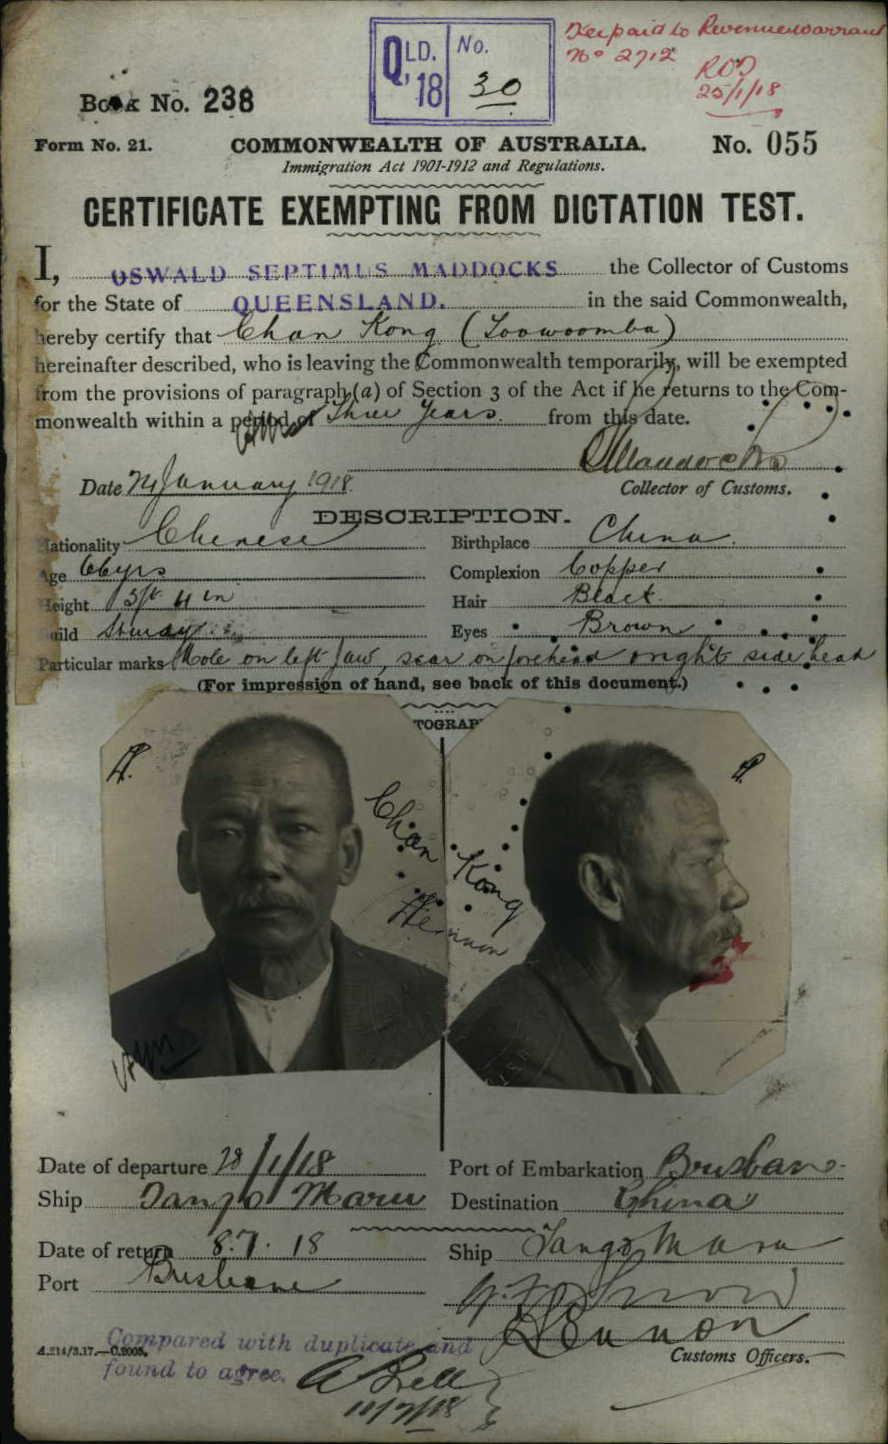 Fee paid to Revenue warrant
No 2712
ROD
25/1/18
QLD. '18 No. 30
Book No. 238
Form No. 21. COMMONWEALTH OF AUSTRALIA. No. 055
Immigration Act 1901-1912 and Regulations.
CERTIFICATE EXEMPTING FROM DICTATION TEST.
I, OSWALD SEPTIMUS MADDOCKS the Collector of Customs
for the State of QUEENSLAND. in the said Commonwealth,
hereby certify that Chan Kong (Toowoomba)
hereinafter described, who is leaving the Commonwealth temporarily, will be exempted
from the provisions of paragraph (a) of Section 3 of the Act if he returns to the Com-
monwealth within a period of Three Years. from this date.
OSMaddocks
Date 24 January 1918. Collector of Customs.
DESCRIPTION.
Nationality Chinese Birthplace China.
Age 66yrs Complexion Copper
Height 5ft 4 in Hair Black
Build Sturdy Eyes Brown
Particular marks Mole on left Jaw, scar on forehead right side head
(For impression of hand, see back of this document.)
TOGRAP
Chan Kong
Date of departure 28/1/18 Port of Embarkation Brisbane
Ship Tango Maru Destination China
Date of return 8.7.18 Ship Tango Maru
Port Brisbane
Customs Officers.
A.214/3.17.—C.2008.
Compared with duplicate and
found to agree.
10/7/18